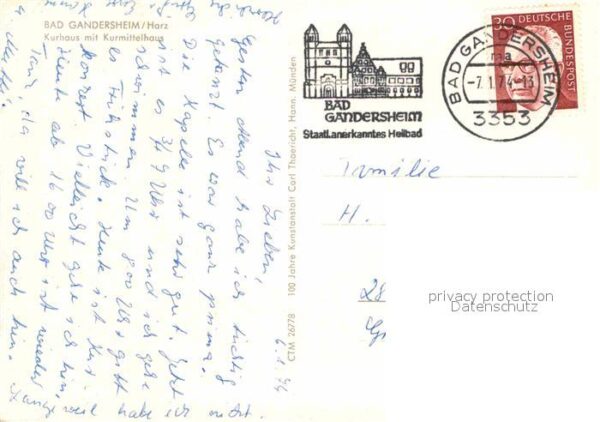 BAD GANDERSHEIM/Harz
Kurhaus mit Kurmittelhaus
6.1.74
Ihr Lieben,
Gestern Abend habe ich tüchtig
getanzt. Es war ganz prima.
Die Kapelle ist sehr gut. Jetzt
ist es 3/4 7 Uhr und ich gehe
schwimmen. Um 8 00 Uhr gibt
es Frühstück. Heute ist Kur-
konzert. Vielleicht gehe ich hin.
Heute ab 16 00 Uhr ist wieder
Tanz, da will ich auch hin.
weil habe ich nicht
CTM 26778 100 Jahre Kunstanstalt Carl Thoericht, Hann. Münden
BAD
GANDERSHEIM
Staatl.anerkanntes Heilbad
BAD GANDERSHEIM
ma
-7.1.74-13
3353
30 DEUTSCHE
BUNDESPOST
Familie
H.
28
privacy protection
Datenschutz